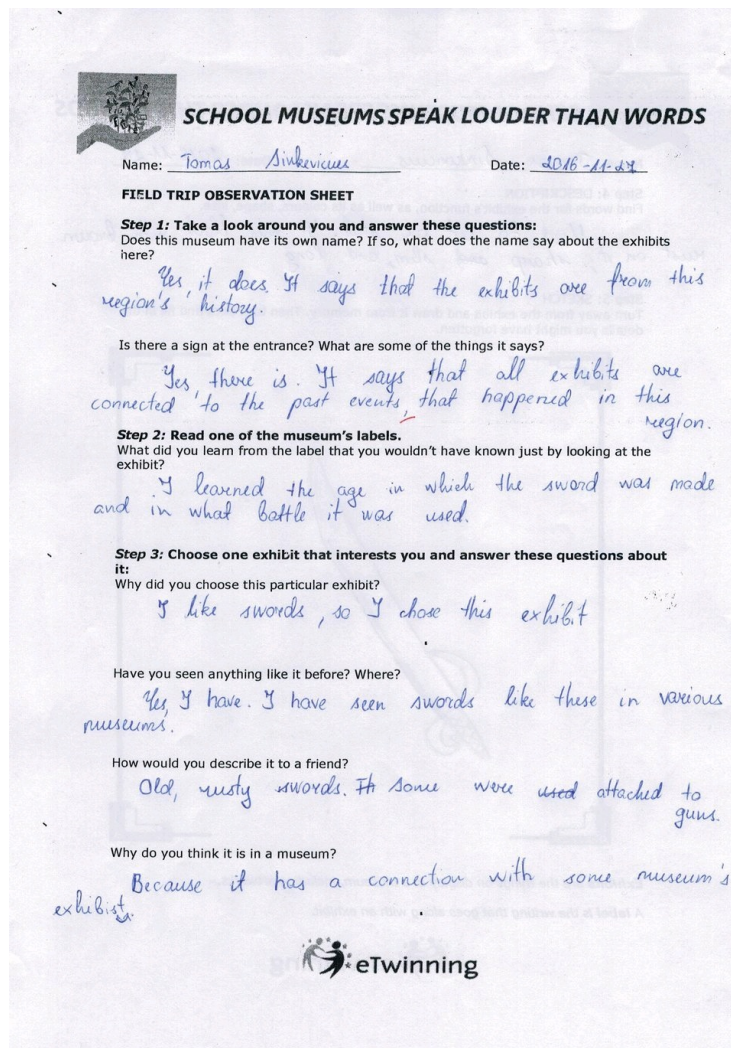 SCHOOL MUSEUMS SPEAK LOUDER THAN WORDS
Name: Tomas Sinkevicius Date: 2016-11-27
FIELD TRIP OBSERVATION SHEET
Step 1: Take a look around you and answer these questions:
Does this museum have its own name? If so, what does the name say about the exhibits
here?
Yes, it does. It says that the exhibits are from this
region's history.
Is there a sign at the entrance? What are some of the things it says?
Yes, there is. It says that all exhibits are
connected to the past events, that happened in this
region.
Step 2: Read one of the museum's labels.
What did you learn from the label that you wouldn't have known just by looking at the
exhibit?
I learned the age in which the sword was made
and in what battle it was used.
Step 3: Choose one exhibit that interests you and answer these questions about
it:
Why did you choose this particular exhibit?
I like swords, so I chose this exhibit
Have you seen anything like it before? Where?
Yes, I have. I have seen swords like these in various
museums.
How would you describe it to a friend?
Old, rusty swords. Some were used attached to
guns.
Why do you think it is in a museum?
Because it has a connection with some museum's
eTwinning